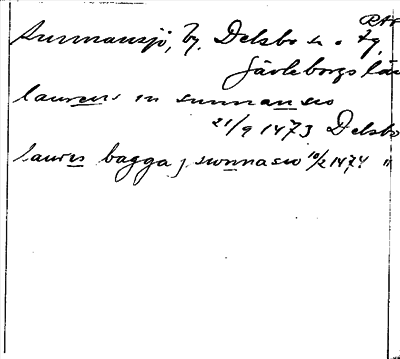 Sunnansjö, by, Delsbo sn o tg
Gävleborgs län
laurens in sunnanseo
21/9 1473 Delsbo
laures bagga j swnnaseo 10/2 1474 "